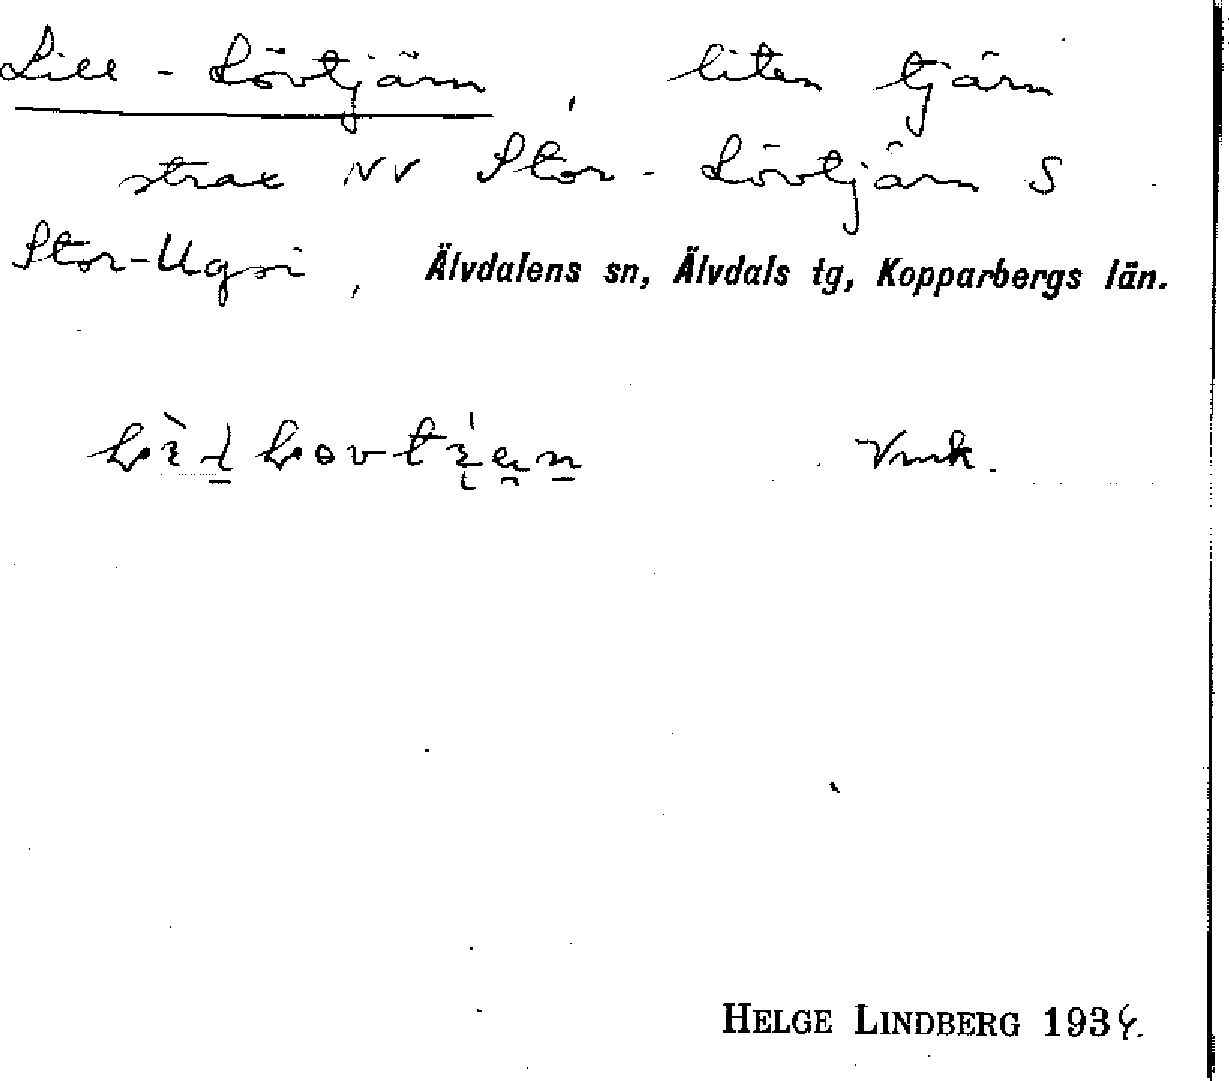 Lill-Lövtjärn, liten tjärn
strax NV Stor-Lövtjärn S
Stor-Ugsi, Älvdalens sn, Älvdals tg, Kopparbergs län.
Vmk.
HELGE LINDBERG 1934.